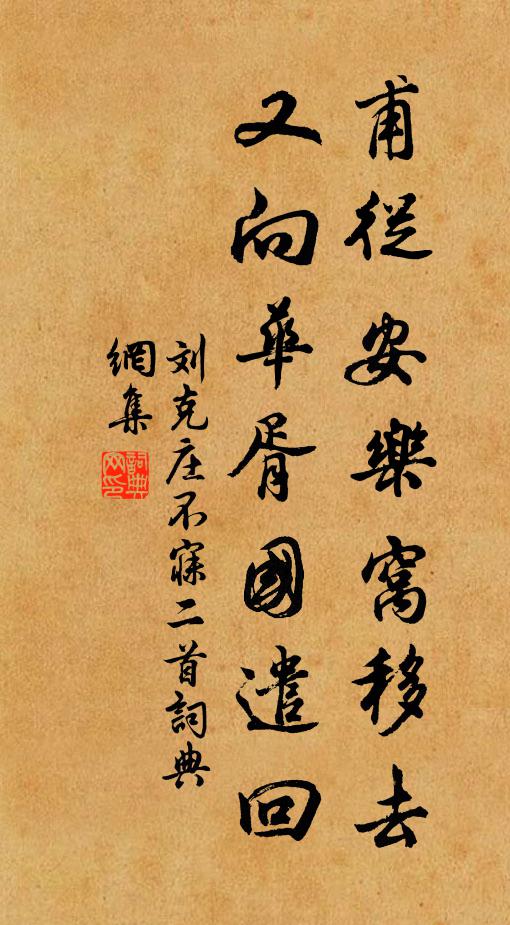 甫從安樂窩移去
又向華胥國遣回
刘克庄不寐二首詞典
網集
詞典网印